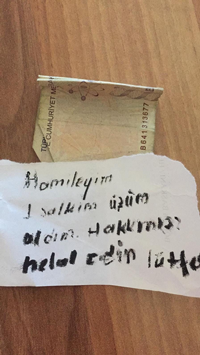 TÜRKİYE CUMHURİYET ME
B641 213677
Hamileyim
1 salkım üzüm
aldım. Hakkınızı
helal edin lütfe